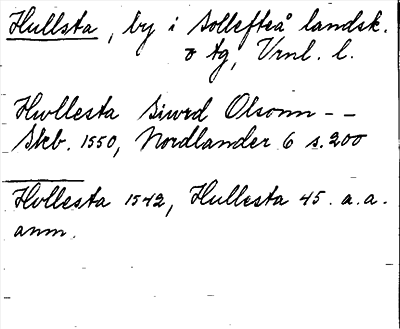 Hullsta, by i Sollefteå landsk.
o tg, Vrnl. l.
Hwllesta Siwrd Olsonn - -
Skb. 1550, Nordlander 6 s. 200
Hvllesta 1542, Hullesta 45. a. a.
anm.